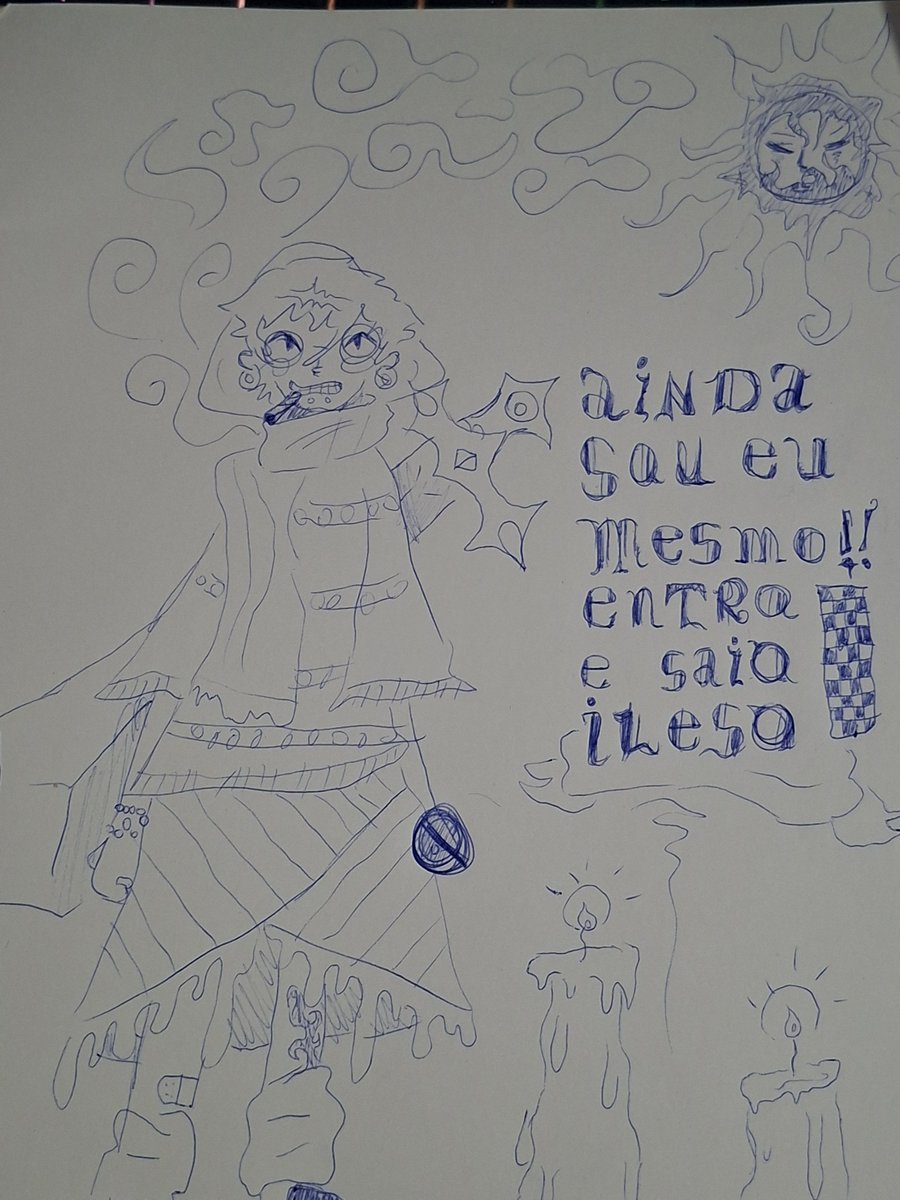 AINDA
SOU EU
MESMO!!
ENTRA
E SAIO
ILESO